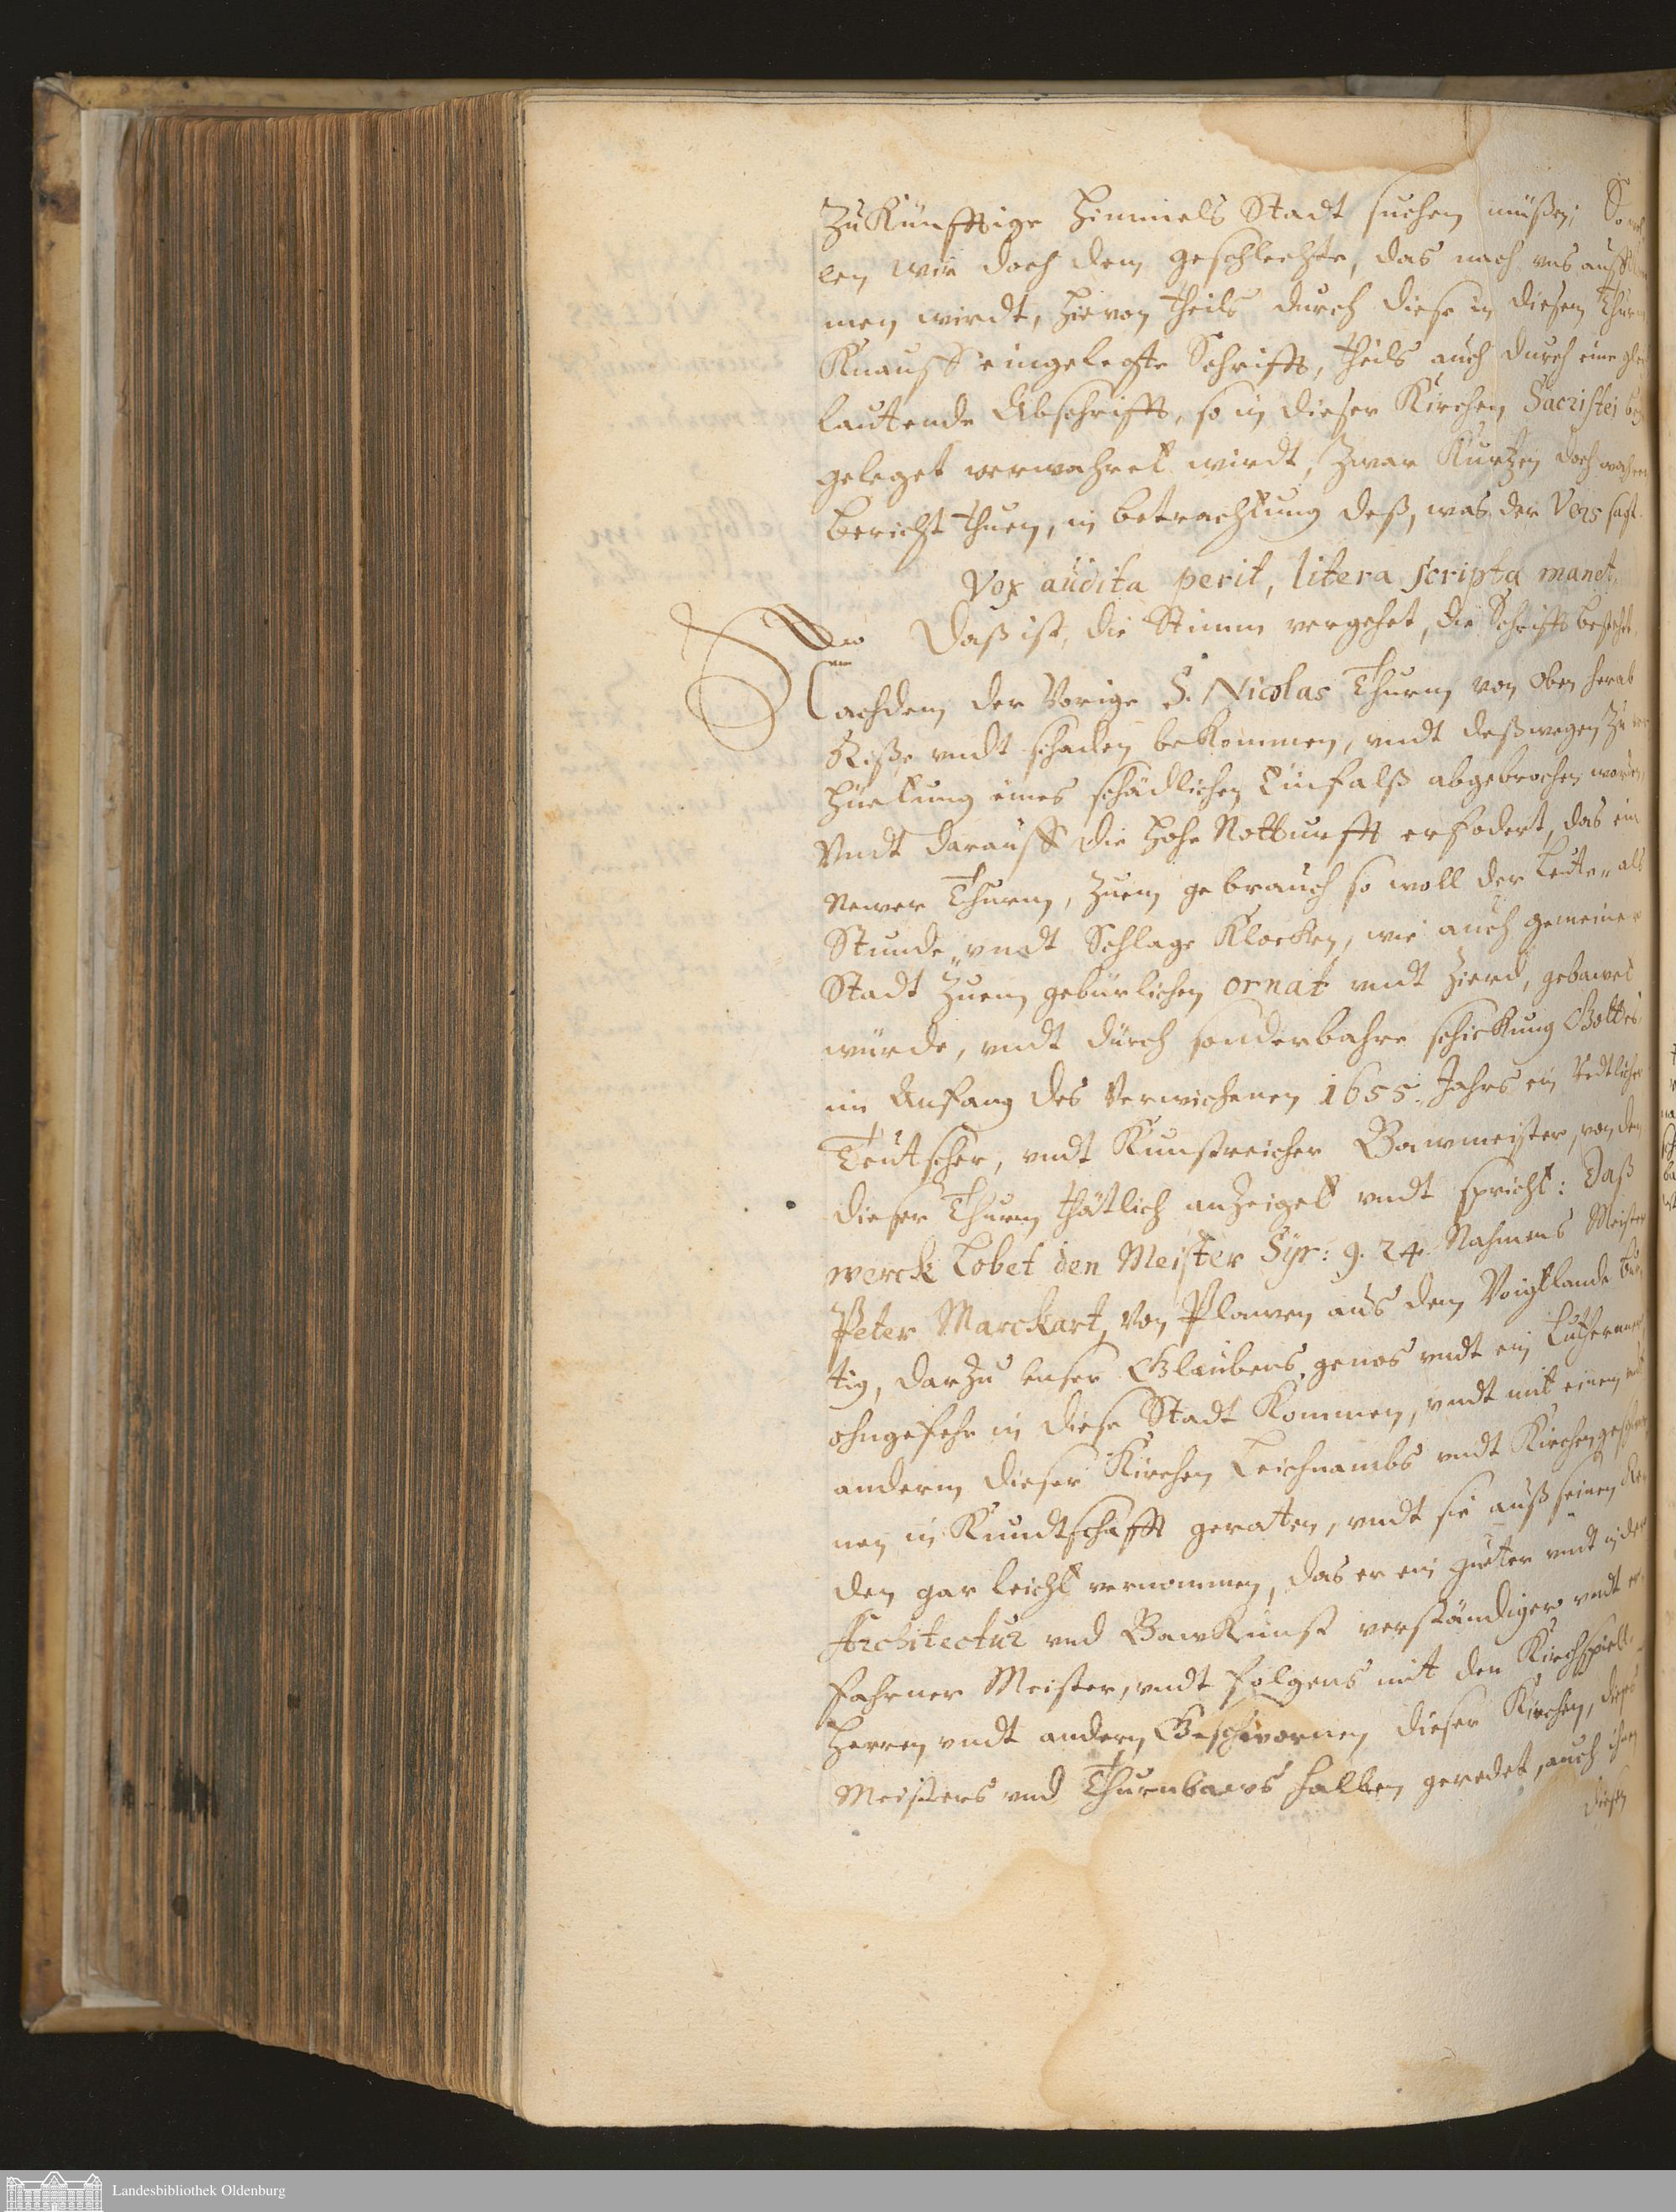 Zukünfftige Himmels Stadt suchen müßen; So
len wir doch dem geschlechte, das nach uns auff
men wirdt, hievon theils durch diese in diesen Thurn
Knauff eingelegte Schrifft, theils auch durch eine
lautende Abschrifft, so in dieser Kirchen Sacristei
geleget verwahret wirdt, zwar Kurtzen doch wahren
bericht thuen, in betrachtung deß, was der Vers sagt.
Vox audita perit, litera scripta manet.
Daß ist, die Stimm vergehet, die Schrifft bestehet.
Nachdem der Vorige S. Nicolas Thurm von oben herab
Riße undt schaden bekommen, undt deßwegen zu
hüetung eines schädlichen Einfalß abgebrochen worden,
Undt darauff die hohe Notturfft erfodert, das ein
Newer Thurm, zuem gebrauch so woll der Leute„ als
Stunde„ undt Schlage Klocken, wie auch gemeiner
Stadt zuem gebürlichen ornat undt Zierd, gebawet
würde, undt durch sonderbahre schickung Gottes
im Anfang des Verwichenen 1655. Jahrs ein Redtlicher
Teutscher, undt Kunstreicher Bawmeister, von dem
dieser Thurm thätlich anzeiget undt spricht: Daß
werck Lobet den Meister Syr: 9. 24. Nahmens Meister
Peter Marckart, Von Plawen aus dem Voigtlande
tig, darzu unser Glaubens genos undt ein Lutheraner
ohngefehr in diese Stadt Kommen, undt mit einem
anderm dieser Kirchen Leichnambs undt Kirchengeschwor
nen in Kundtschafft geraten, undt sie auß seinen Re
den gar leicht vernommen, das er ein guter undt in der
Architectur und BawKunst verständiger undt er
fahrner Meister, undt folgens mit den Kirchspiell
Herren undt andern Geschwornen dieser Kirchen, dieses
Meisters und Thurnbaws halben geredet, auch ihnen
diesen
Landesbibliothek Oldenburg